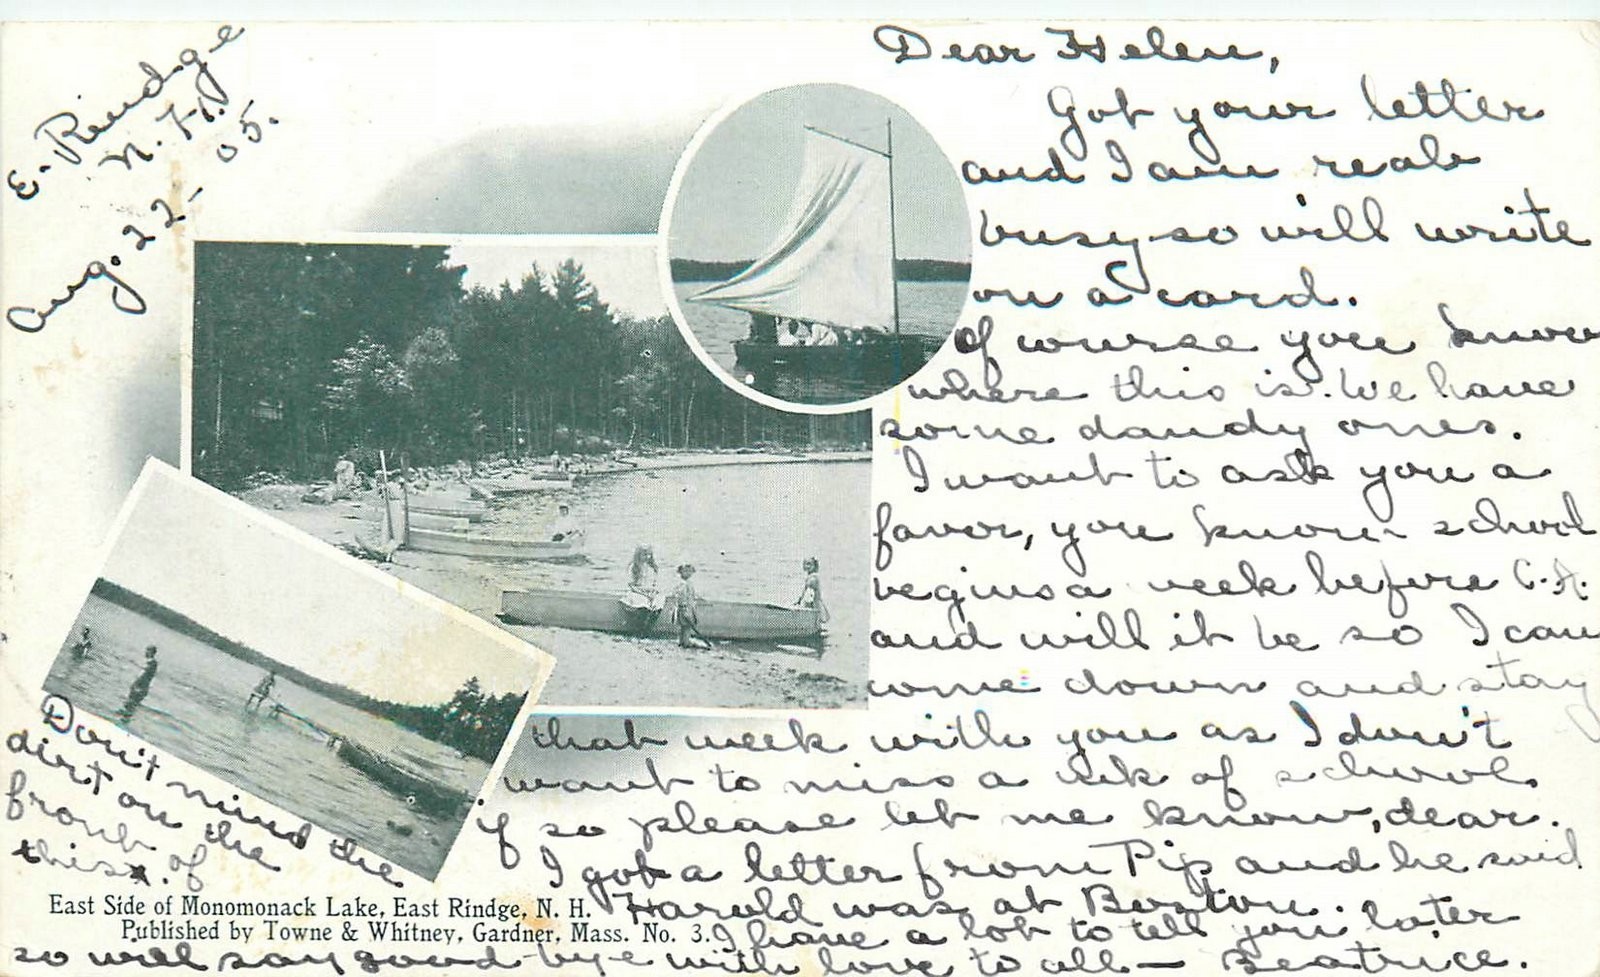 E. Rindge
N. H.
Aug. 22-05.
Dear Helen,
Got your letter
and I am real
busy so will write
on a card.
Of course you know
where this is. We have
some dandy ones.
I want to ask you a
favor, you know school
begins a week before C.A.
and will it be so I can
come down and stay
that week with you as I don't
want to miss a wk of school.
if so please let me know, dear.
I got a letter from Pip and he said
Harold was at Boston.
I have a lot to tell you later
so will say good-bye with love to all — Beatrice.
Don't mind the
dirt on the
front of
this.
East Side of Monomonack Lake, East Rindge, N. H.
Published by Towne & Whitney, Gardner, Mass. No. 3.